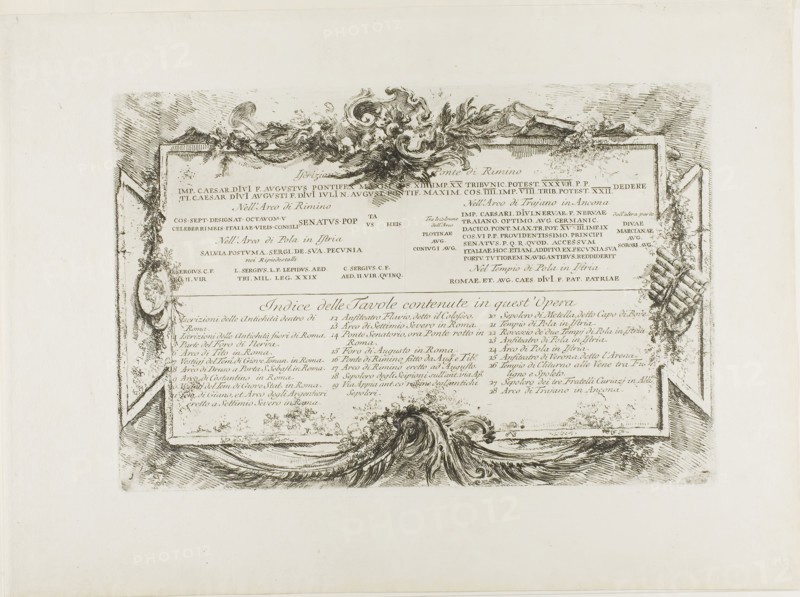 PHOTO12
Iscrizioni Ponte di Rimino
IMP. CAESAR. DIVI F. AVGVSTVS PONTIFEX MAXIM. COS. XIII IMP. XX TRIBVNIC. POTEST. XXXVII. P. P.
TI. CAESAR DIVI AVGVSTI F. DIVI IVLI N. AVGVST. PONTIF. MAXIM. COS. IIII. IMP. VIII. TRIB. POTEST. XXII DEDERE
Nell'Arco di Rimino
COS. SEPT. DESIGNAT. OCTAVOM. V
CELEBERRIMEIS. ITALIAE. VIEIS. CONSILI SENATVS. POP
Nell'Arco di Pola in Istria
SALVIA. POSTVMA. SERGI. DE. SVA. PECVNIA
nei Ripedistalli
L. SERGIVS. C. F. AED. II. VIR
L. SERGIVS. L. F. LEPIDVS. AED. TRI. MIL. LEG. XXIX
C. SERGIVS. C. F. AED. II. VIR. QVINQ.
Nell'Arco di Trajano in Ancona
dell'Arco
PLOTINAE
AVG.
CONIVGI AVG.
IMP. CAESARI. DIVI. NERVAE. F. NERVAE
TRAIANO. OPTIMO. AVG. GERMANIC.
DACICO. PONT. MAX. TR. POT. XVIIII. IMP. IX
COS. VI. P. P. PROVIDENTISSIMO. PRINCIPI
SENATVS. P. Q. R. QVOD. ACCESSVM
ITALIAE. HOC. ETIAM. ADDITO. EX. PECVNIA. SVA
PORTV. TVTIOREM. NAVIGANTIBVS. REDDIDERIT
Dall'altra parte
DIVAE
MARCIANAE
AVG.
SORORI AVG.
Nel Tempio di Pola in Istria
ROMAE. ET. AVG. CAES DIVI F. PAT. PATRIAE
Indice delle Tavole contenute in quest'Opera
Iscrizioni delle Antichità dentro di
Roma.
Iscrizioni delle Antichità fuori di Roma.
5 Parte del Foro di Nerva.
6 Arco di Tito in Roma.
7 Vestigj del Tem. di Giove Tonan. in Roma.
8 Arco di Druso a Porta S. Sebast. in Roma.
9 Arco di Costantino in Roma.
Vestigj del Tem. di Giove Stat. in Roma.
11 Tem. di Giano, et Arco degli Argentieri
eretto a Settimio Severo in Roma.
12 Anfiteatro Flavio, detto il Colosseo.
13 Arco di Settimio Severo in Roma.
14 Ponte Senatorio, ora Ponte rotto in
Roma.
15 Foro di Augusto in Roma.
16 Ponte di Rimino fatto da Aug. e Tib.
17 Arco di Rimino eretto ad Augusto.
18 Sepolcro degli Scipioni sull'ant. via Ap.
19 Via Appia ant. co' rottami degl'antichi
Sepolcri.
20 Sepolcro di Metella, detto Capo di Bove.
21 Tempio di Pola in Istria.
22 Rovescio de' due Tempj di Pola in Istria.
23 Anfiteatro di Pola in Istria.
24 Arco di Pola in Istria.
25 Anfiteatro di Verona detto l'Arena.
26 Tempio di Clitunno alle Vene tra Fu-
ligno e Spoleto.
27 Sepolcro dei tre Fratelli Curiazj in Alb.
28 Arco di Trajano in Ancona.